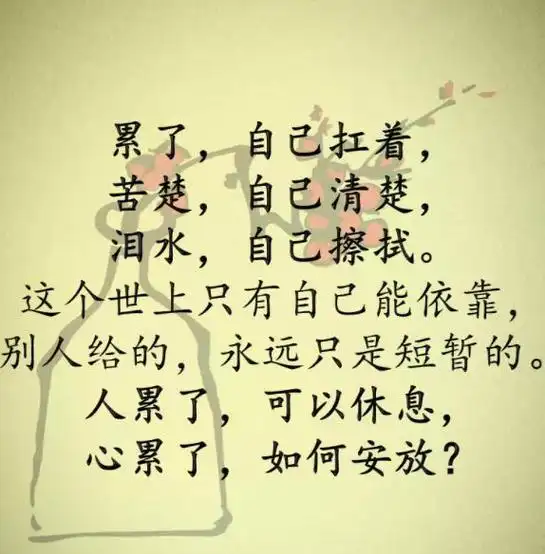 累了，自己扛着，
苦楚，自己清楚，
泪水，自己擦拭。
这个世上只有自己能依靠，
别人给的，永远只是短暂的。
人累了，可以休息，
心累了，如何安放？